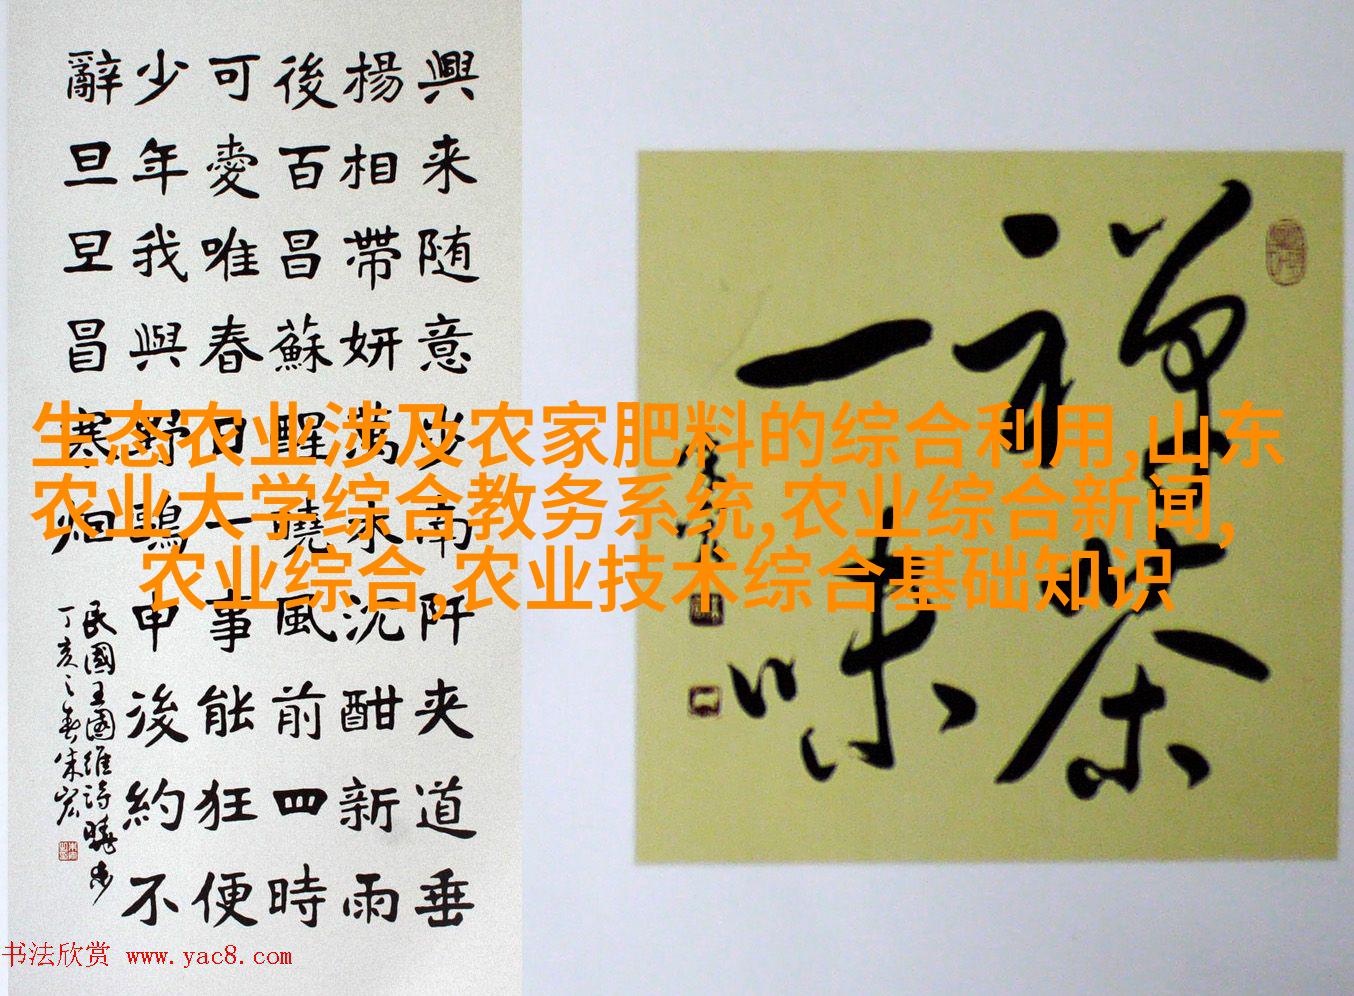 興来随意步南阡夹道垂
楊相帶妍萬木沉酣新雨
後百昌蘇醒曉風前四時
可愛唯春日一事能狂便
少年我與野鷗申後約不
辭旦旦冒寒烟
民國王國維詩曉步
丁亥之春朱宏
禪茶
一味
生态农业涉及农家肥料的综合利用,山东
农业大学综合教务系统,农业综合新闻,
农业综合,农业技术综合基础知识
书法欣赏 www.yac8.com